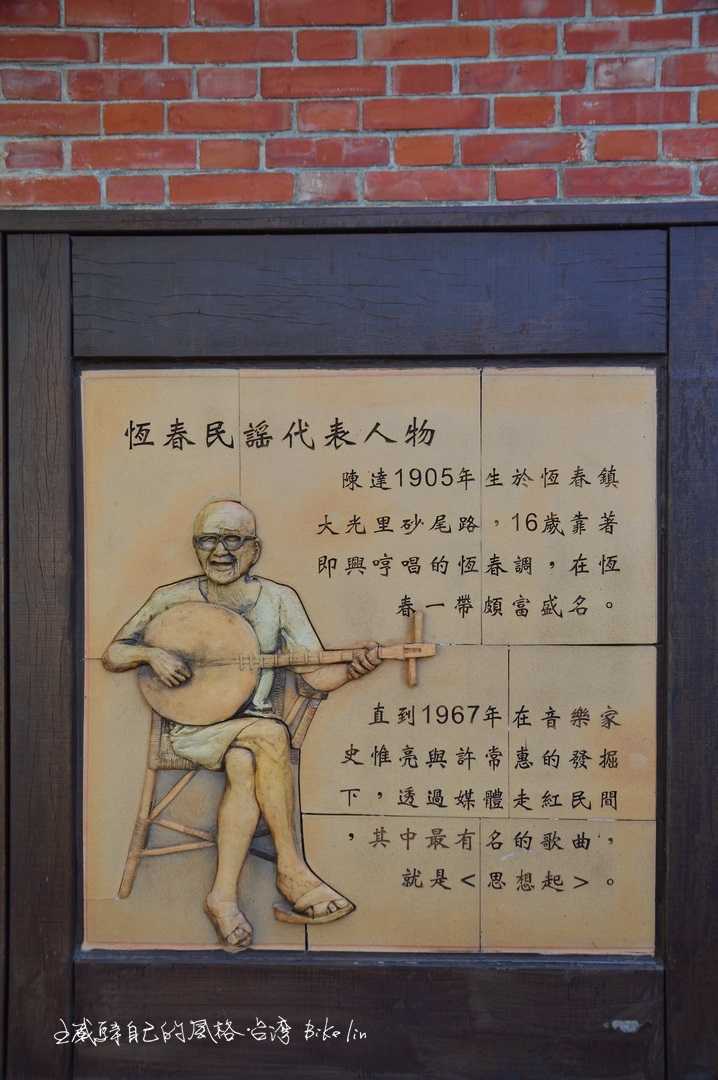 恆春民謠代表人物
陳達1905年生於恆春鎮
大光里砂尾路，16歲靠著
即興哼唱的恆春調，在恆
春一帶頗富盛名。
直到1967年在音樂家
史惟亮與許常惠的發掘
下，透過媒體走紅民間
，其中最有名的歌曲，
就是<思想起>。
自己的風格·台湾 Biko lin